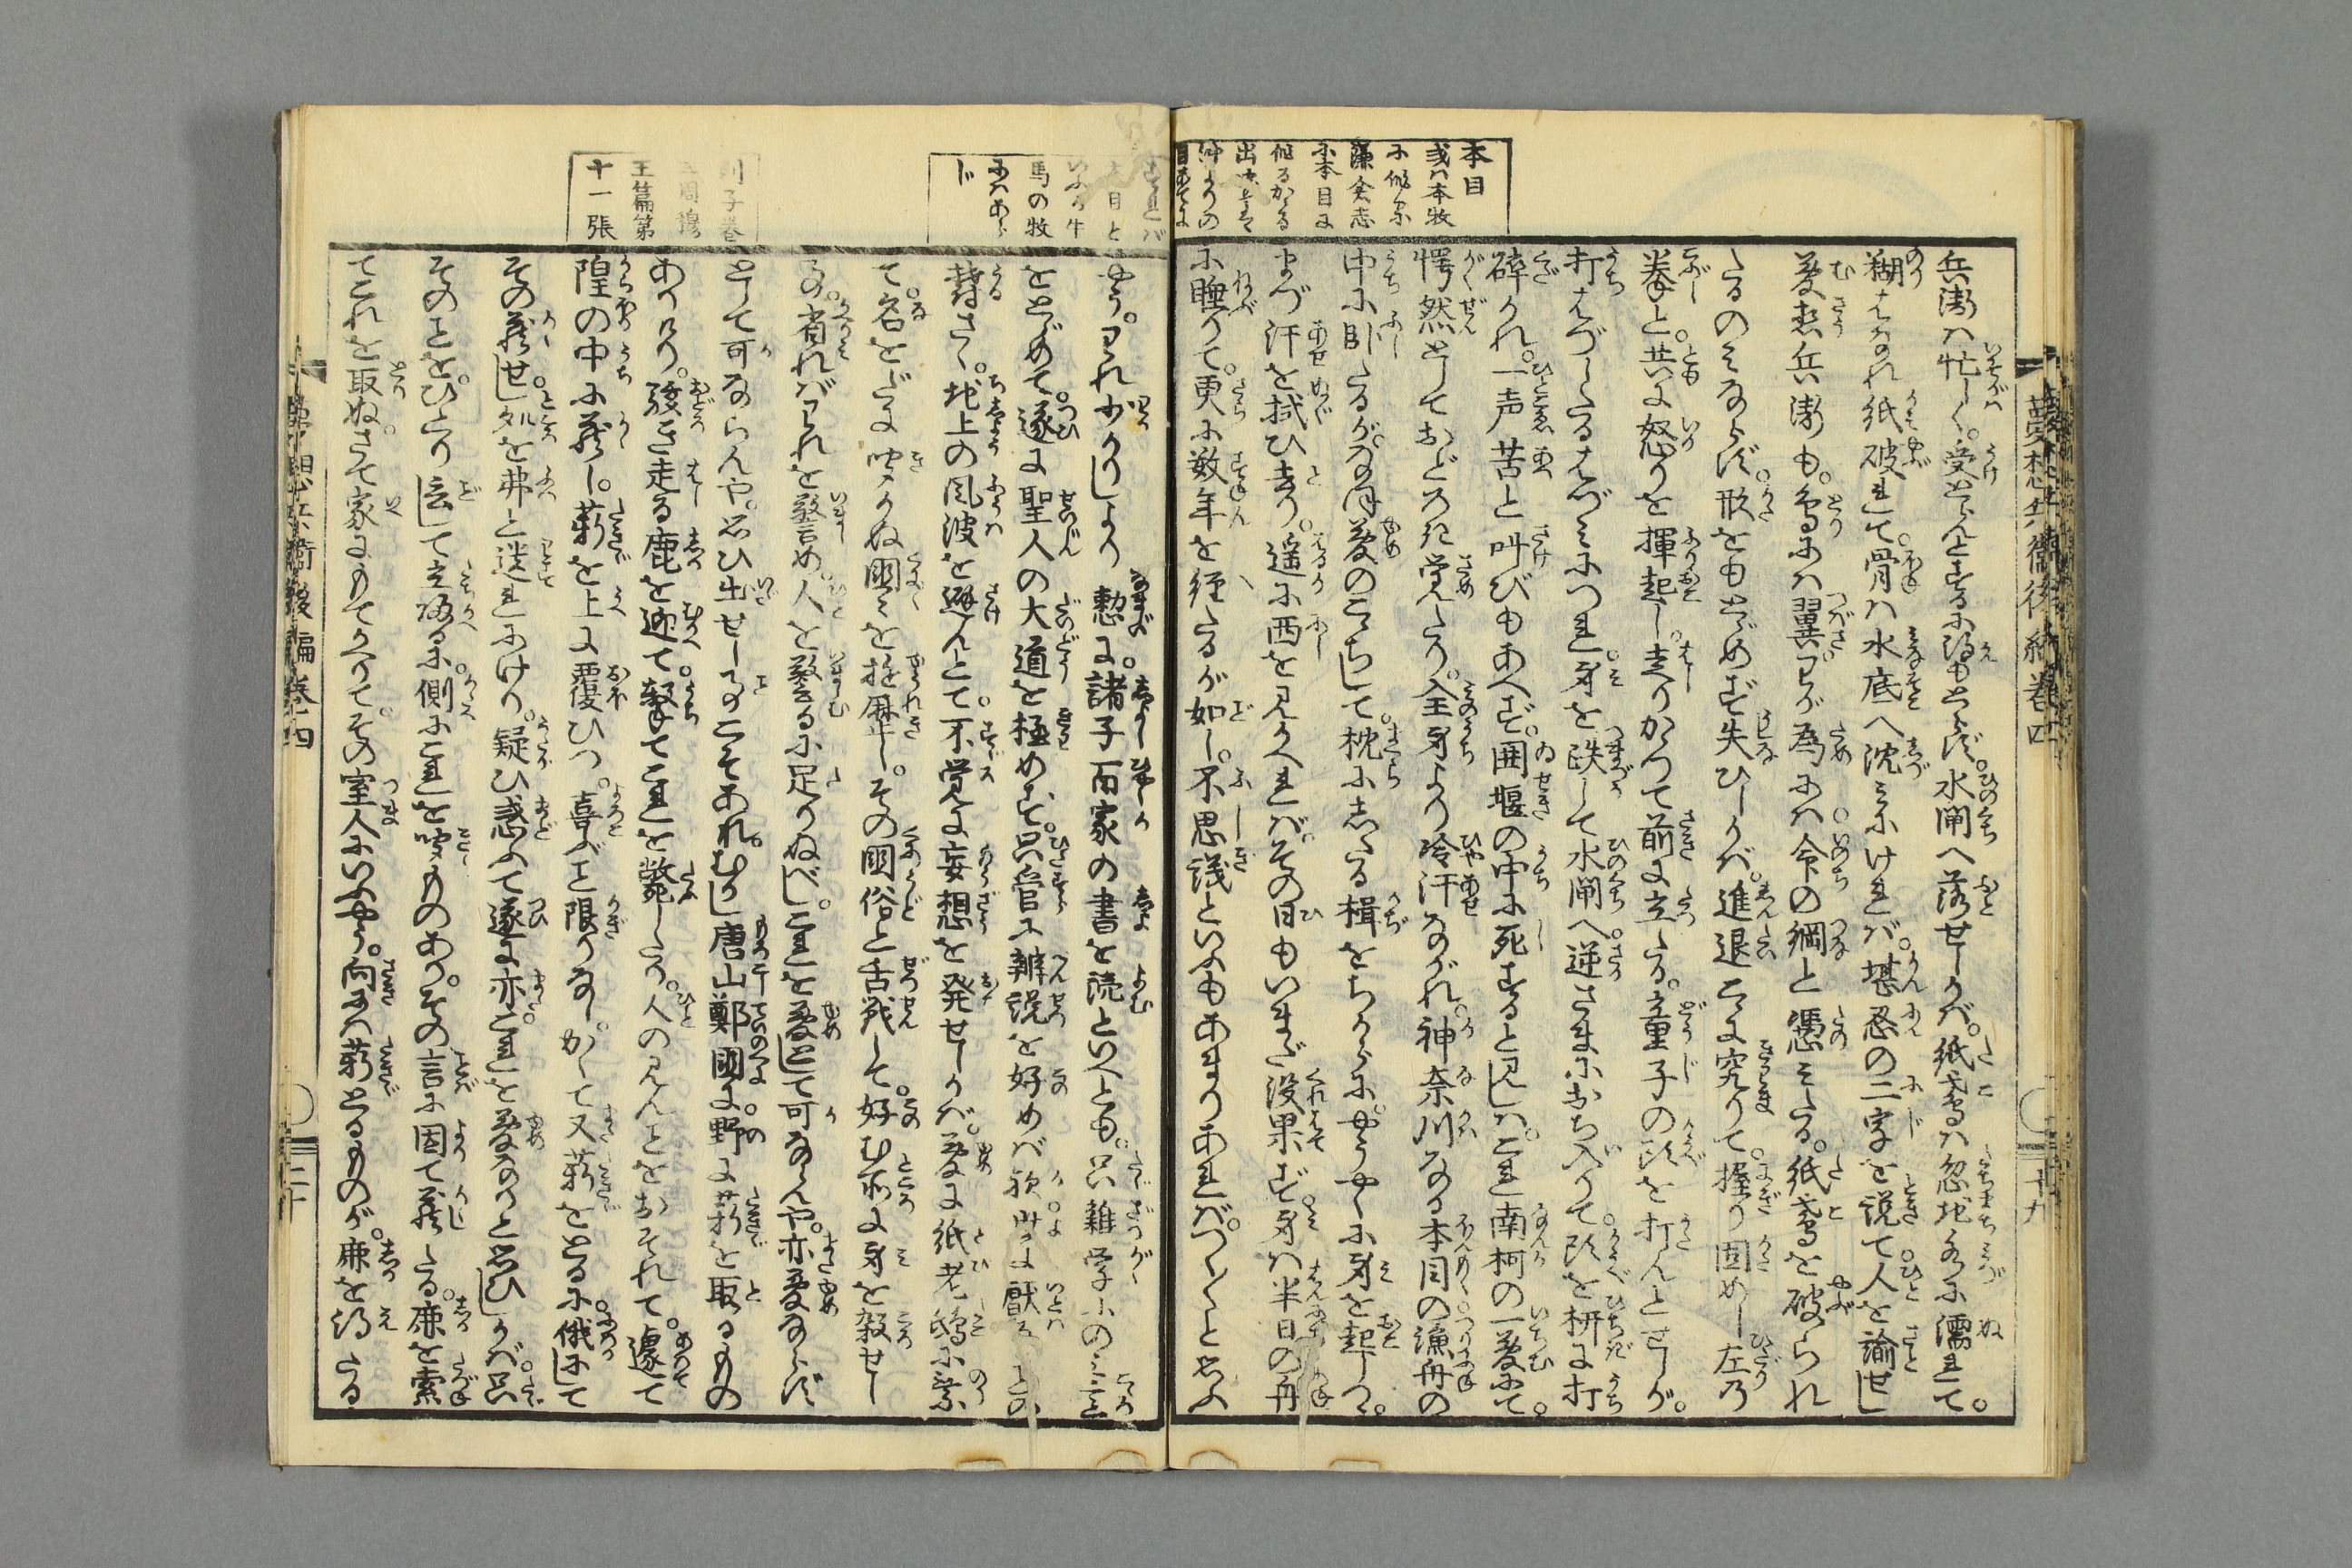 夢想兵衛後編巻四
十九
本目
或ハ本牧
に作る
出
兵衛ハ忙しく。受とらんとするに得もとらず。水閘へ落せしかバ。紙鳶ハ忽地水に濡れて。
糊はなれ紙破れて。骨ハ水底へ沈みにけれバ。堪忍の二字を説て人を諭せし
夢想兵衛も。鳥にハ翼わが為にハ命の綱と憑みたる。紙鳶を破られ
たるのみならず。形をもとゞめず失ひしかバ。進退こゝに究りて。握り固めし左乃
拳と。共に怒りを揮起し。走りかゝつて前に立たる。童子の頭を打んとせしが。
打はづしたるはづみにつれ。身を跌して水閘へ逆さまにおち入りて。頭を枡に打
砕かれ。一声苦と叫びもあへず。囲堰の中に死すると見しハ。これ南柯の一夢にて。
愕然としておどろき覚たり。全身より冷汗ながれ。神奈川なる本目の漁舟の
中に臥したるが。なほ夢のこゝちして。枕にしたる楫をちからに。やうやくに身を起しつ。
まづ汗を拭ひとり。遥に西を見かへれバ。その日もいまだ没果ず。身ハ半日の舟
に睡りて。更に数年を経たるが如し。不思議といふもあまりあれバ。つく〳〵と思ふ
馬の牧
にハあら
ず
列子巻
三周穆
王篇第
十一張
やう。われ少かりしより。憖に。諸子百家の書を読といへども。只雑学にのみ
をとゞめて。遂に聖人の大道を極めず。只管に辨説を好めバ
替さく。地上の風波を避んとて。不覚に妄想を発せしかバ。夢に紙老鴟に乗
て。名をだに聞かぬ国々を遊歴し。その国俗と舌戦して。好む所に身を殺せし
る。省れバわれを警め。人を警るに足りぬべし。これを夢として可ならんや。亦夢ならず
として可ならんや。思ひ出せし事こそあれ。むかし唐山鄭国に。野に薪を取るもの
ありけり。駭き走る鹿を迎て。撃てこれを斃したり。人の見んことをおそれて。遽て
隍の中に蔵し。薪を上に覆ひつ。喜ぶこと限りなし。かくて又薪をとるに。俄にして
その蔵せし処を弗と遺れにけり。疑ひ惑ふて遂に亦。これを夢なりと思ひしかバ。只
そのことを。ひとり言して立かへるに。側にこれを聞ものあり。その言に因て蔵したる。鹿を索
てこれを取ぬ。さて家にもてかへりて。その室人にいふやう。向にハ薪とるものが。鹿を得たる
夢想兵衛後編巻四
二十